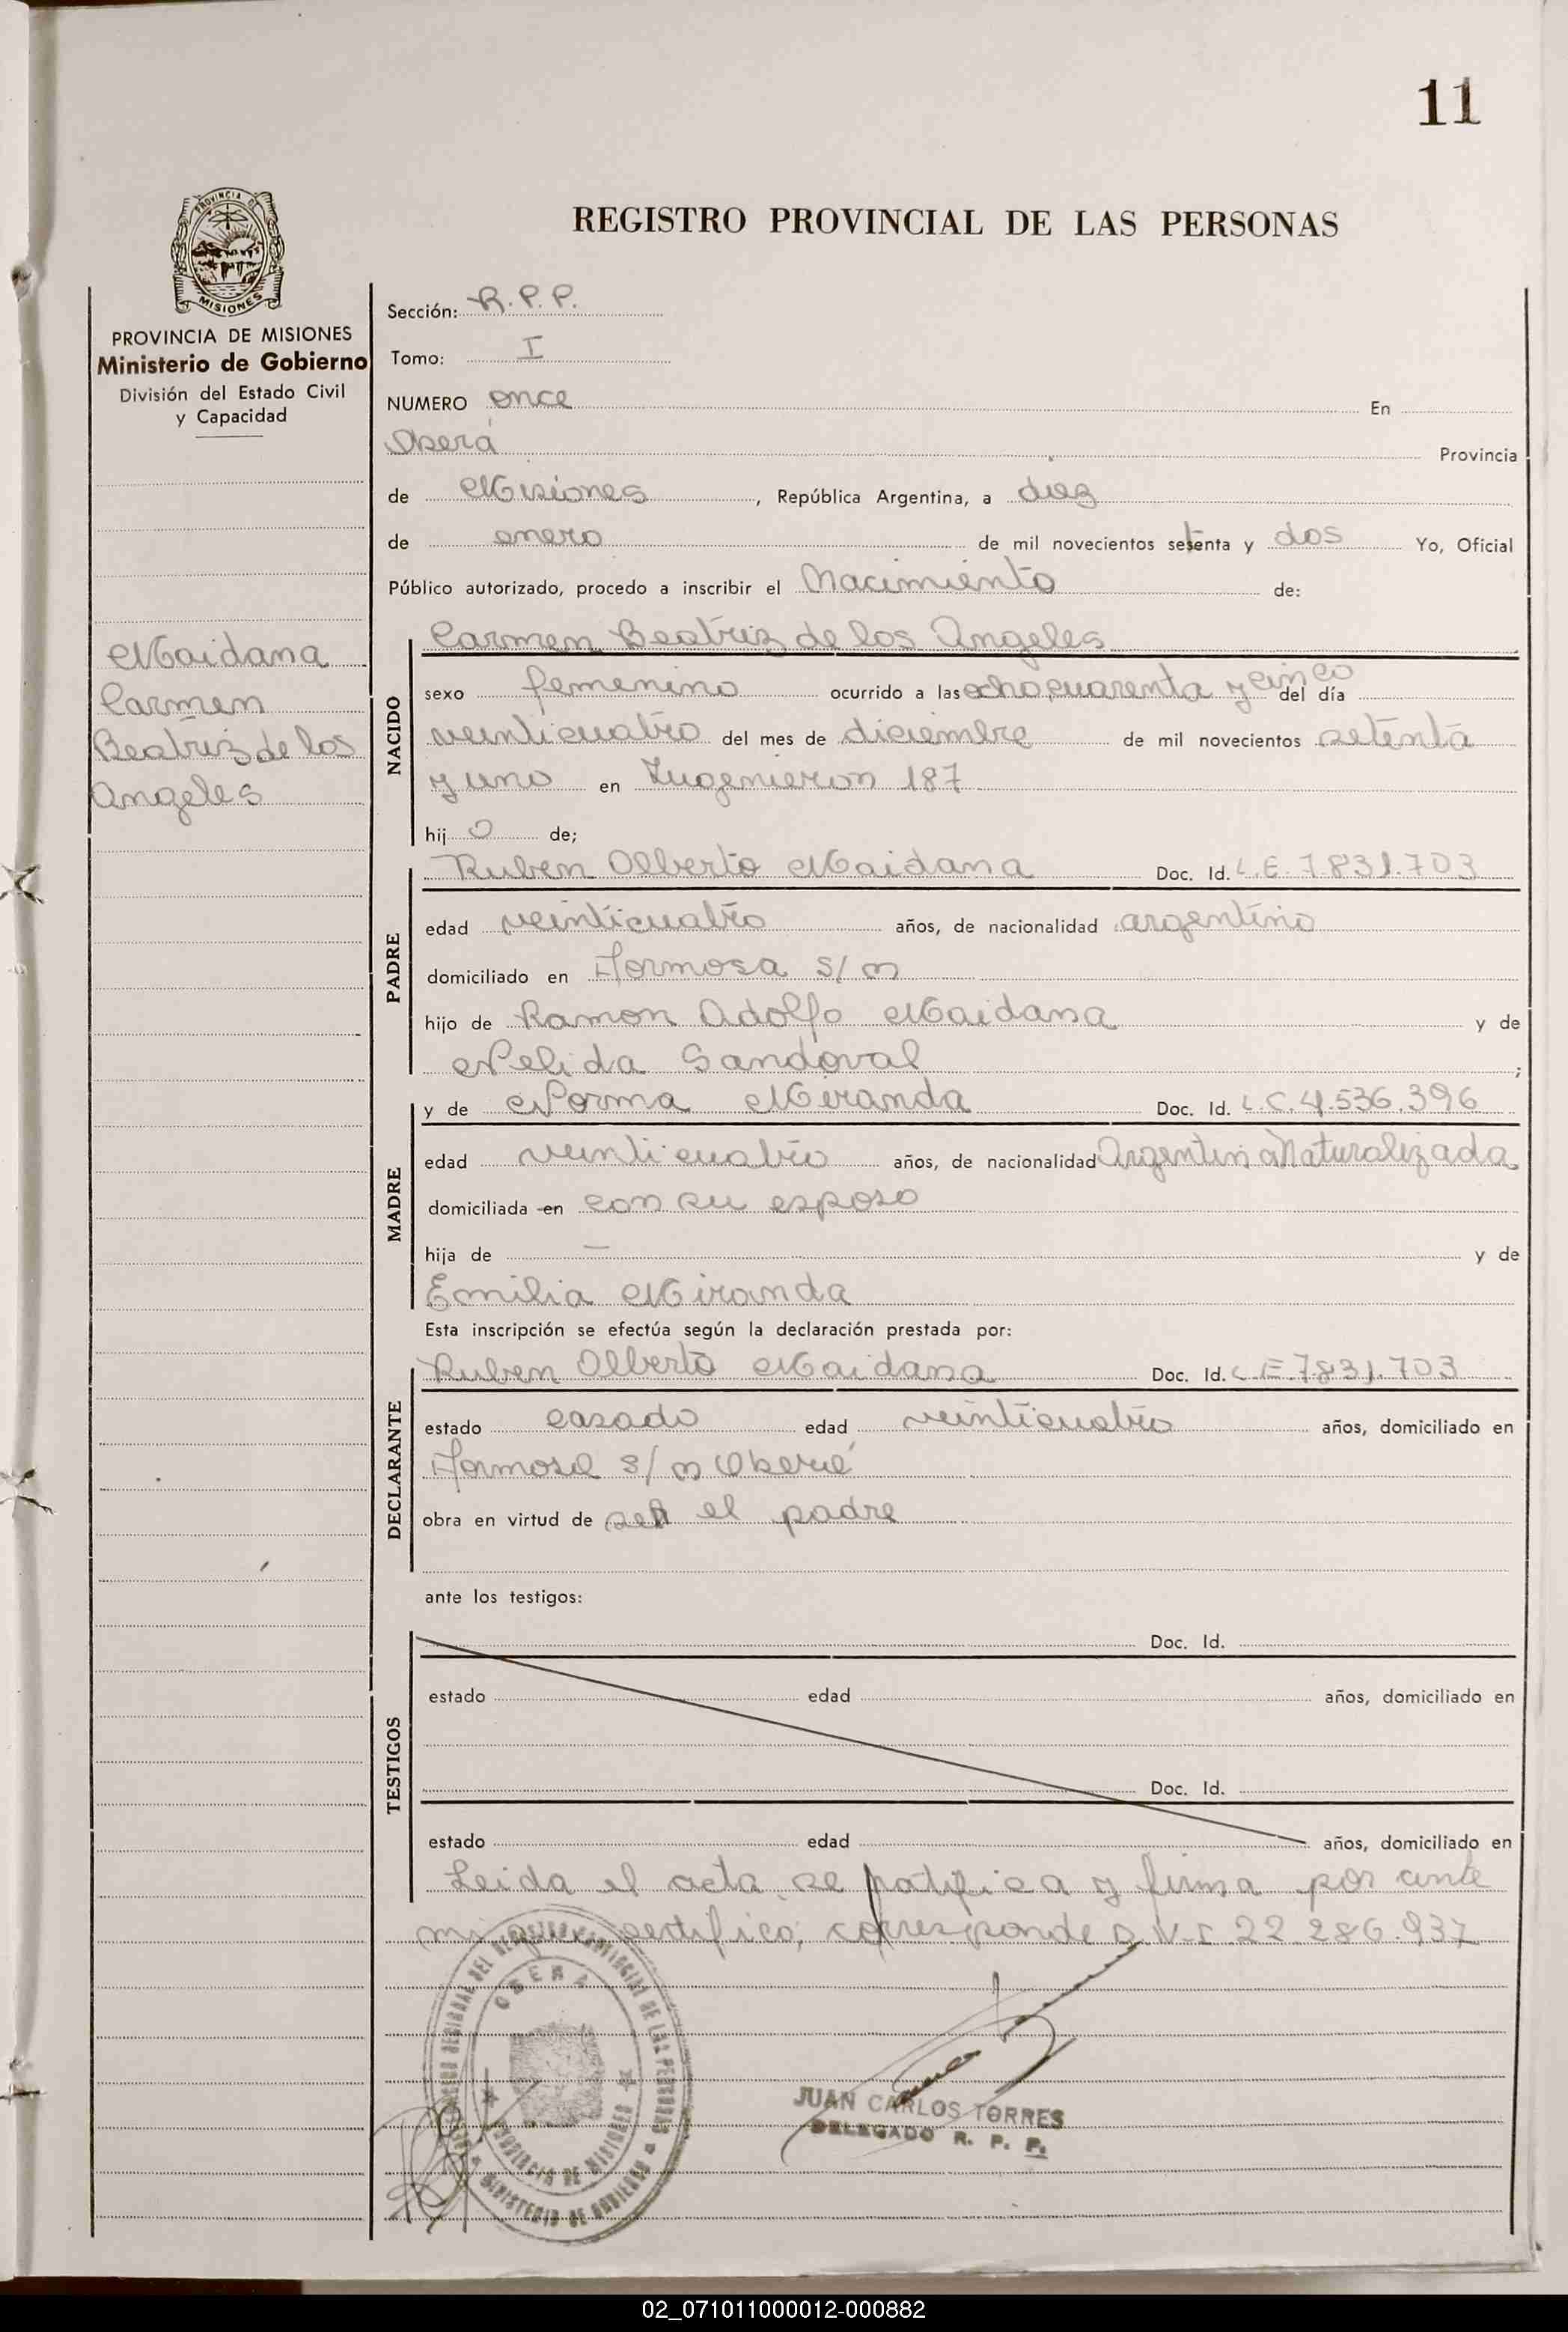 11
PROVINCIA DE
MISIONES
PROVINCIA DE MISIONES
Ministerio de Gobierno
División del Estado Civil
y Capacidad
Maidana
Carmen
Beatriz de los
Angeles
REGISTRO PROVINCIAL DE LAS PERSONAS
Sección: R.P.P.
Tomo: I
NUMERO once En
Oberá Provincia
de Misiones, República Argentina, a diez
de enero de mil novecientos setenta y dos Yo, Oficial
Público autorizado, procedo a inscribir el Nacimiento de:
NACIDO
Carmen Beatriz de los Angeles
sexo femenino ocurrido a las ocho, cuarenta y cinco del día
veinticuatro del mes de diciembre de mil novecientos setenta
y uno en 187
hij de;
PADRE
Ruben Alberto Maidana Doc. Id. L.E. 7.831.703
edad veinticuatro años, de nacionalidad argentino
domiciliado en Formosa s/n
hijo de Ramon Adolfo Maidana y de
Nelida Sandoval ;
MADRE
y de Norma Miranda Doc. Id. L.C. 4.536.396
edad veinticuatro años, de nacionalidad Argentina Naturalizada
domiciliada en con su esposo
hija de — y de
Emilia Miranda
Esta inscripción se efectúa según la declaración prestada por:
DECLARANTE
Ruben Alberto Maidana Doc. Id. L.E. 7.831.703
estado casado edad veinticuatro años, domiciliado en
Formosa s/n Oberá
obra en virtud de ser el padre
ante los testigos:
TESTIGOS
Doc. Id.
estado edad años, domiciliado en
Doc. Id.
estado edad años, domiciliado en
Leida el acta, se ratifica y firma por ante
mi certifico; corresponde D.N.I. 22.286.937
REGIONAL DEL REGISTRO PROVINCIAL DE LAS PERSONAS
OBERA
PROVINCIA DE MISIONES
MINISTERIO DE GOBIERNO
JUAN CARLOS TORRES
DELEGADO R. P. P.
02_071011000012-000882